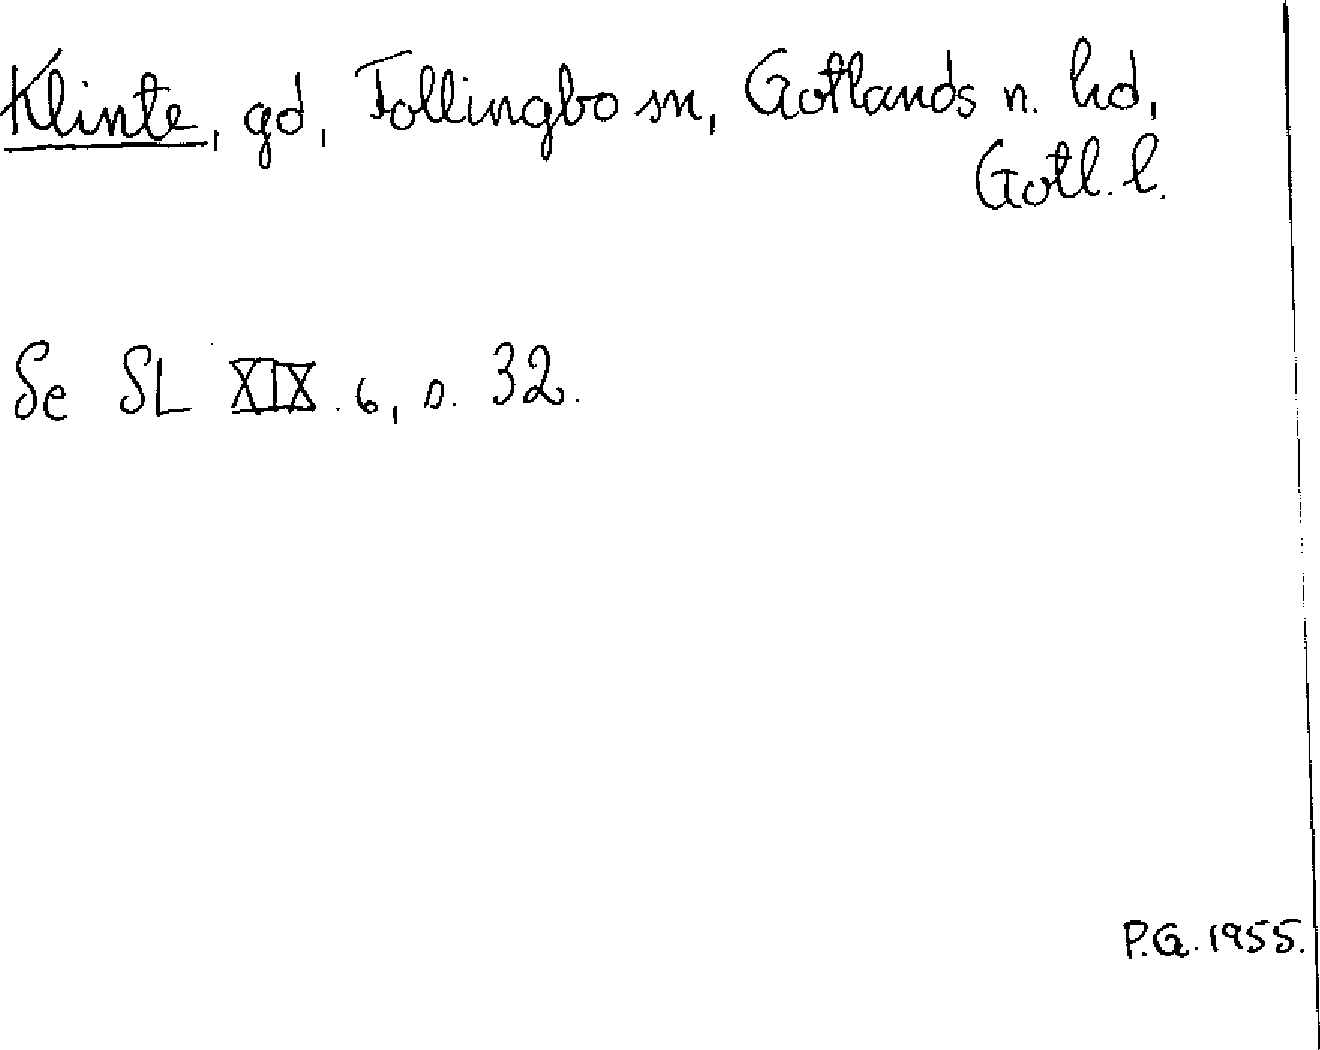 Klinte, gd, Follingbo sn, Gotlands n. hd,
Gotl. l.
Se SL XIX. 6, s. 32.
P.G. 1955.